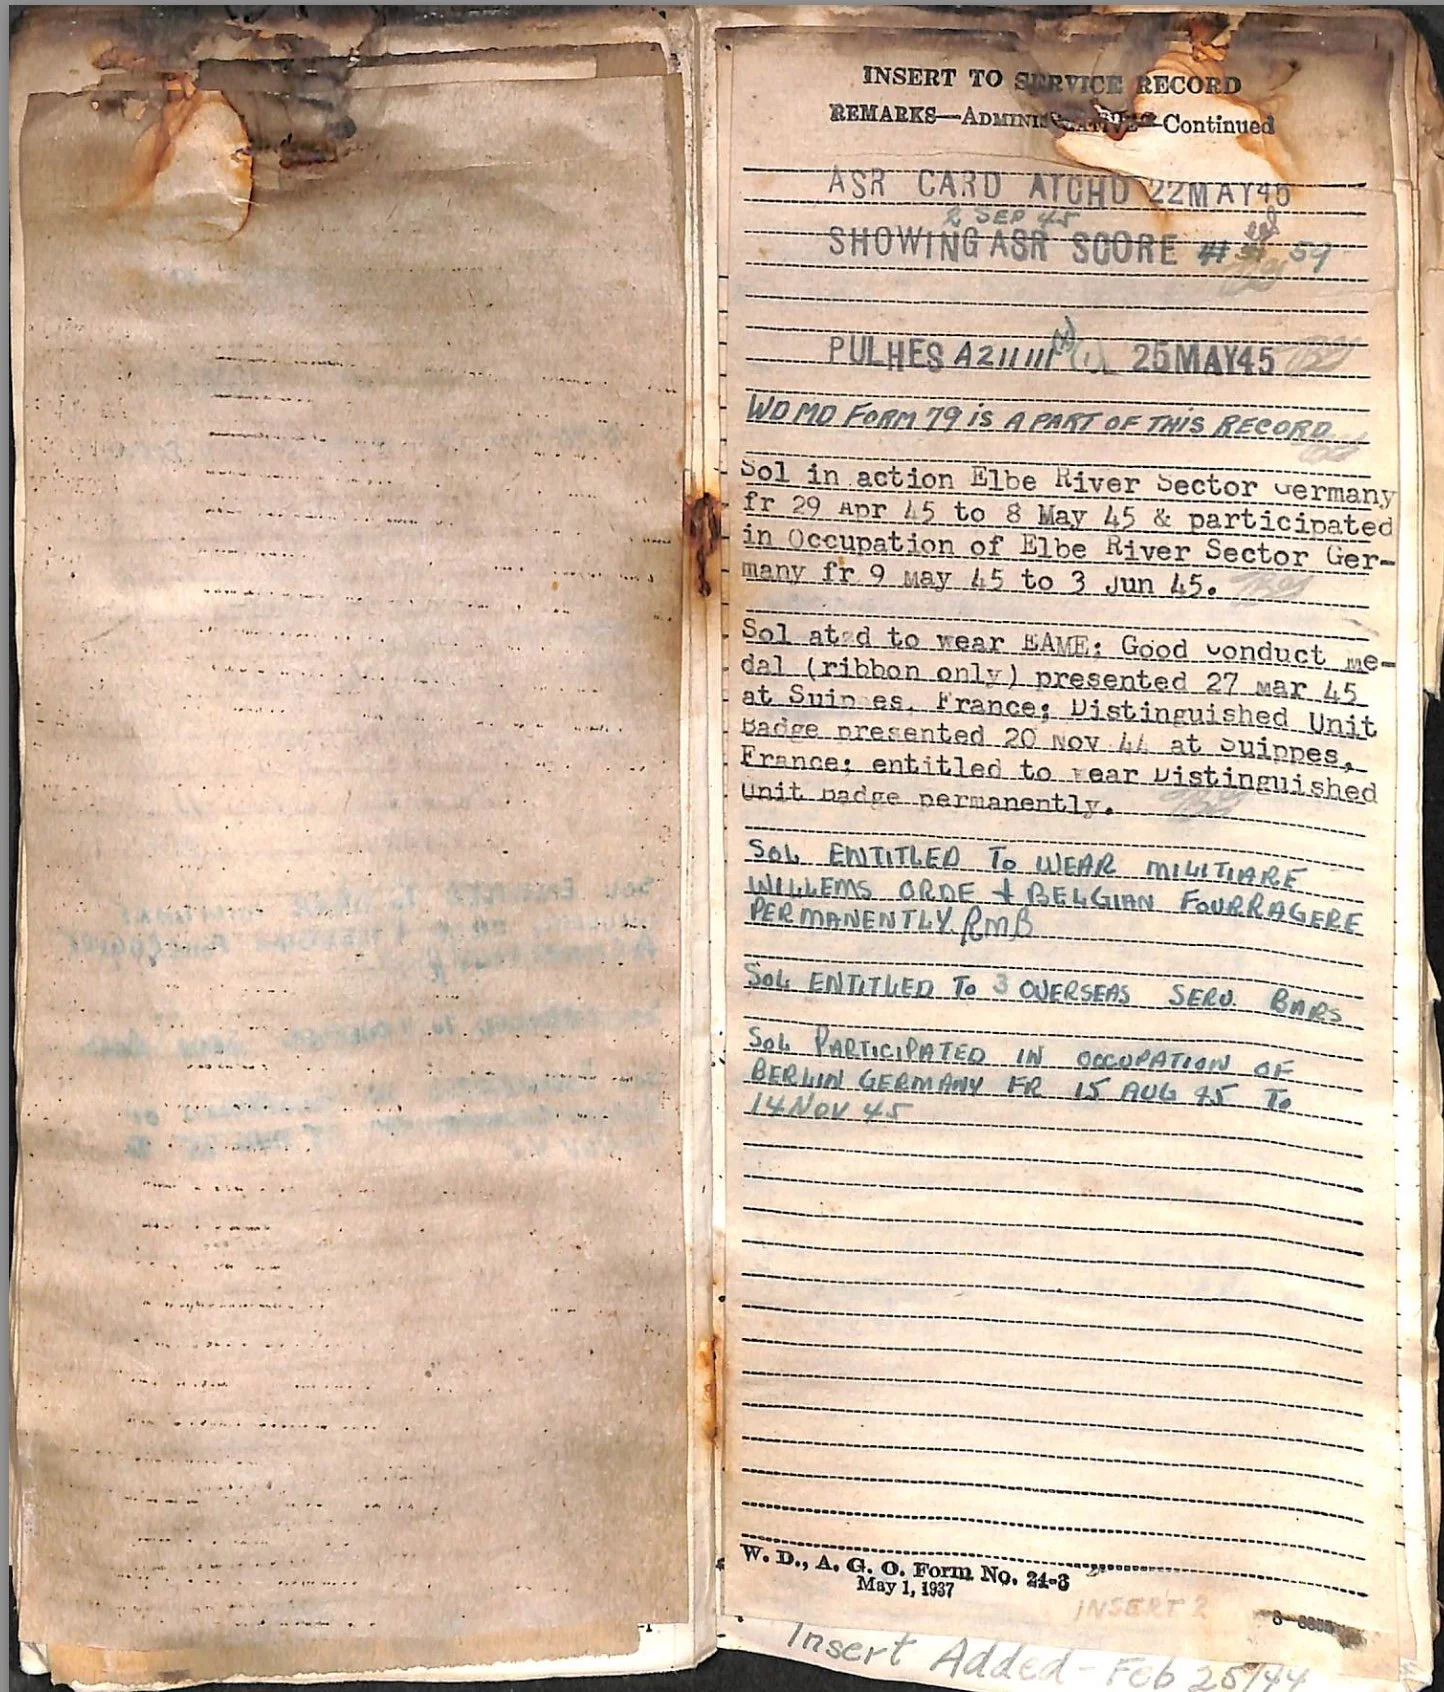 INSERT TO SERVICE RECORD
REMARKS—ADMINISTRATIVE—Continued
ASR CARD ATCHD 22MAY45
2 SEP 45
SHOWING ASR SCORE 59
PULHES A211111 25MAY45
WD MD FORM 79 IS A PART OF THIS RECORD
Sol in action Elbe River Sector Germany
fr 29 Apr 45 to 8 May 45 & participated
in Occupation of Elbe River Sector Ger-
many fr 9 May 45 to 3 Jun 45.
Sol atzd to wear EAME; Good Conduct Me-
dal (ribbon only) presented 27 Mar 45
at Suippes, France; Distinguished Unit
Badge presented 20 Nov 44 at Suippes,
France; entitled to wear Distinguished
Unit Badge permanently.
SOL ENTITLED TO WEAR MILITIARE
WILLEMS ORDE & BELGIAN FOURRAGERE
PERMANENTLY RMB
SOL ENTITLED TO 3 OVERSEAS SERV. BARS
SOL PARTICIPATED IN OCCUPATION OF
BERLIN GERMANY FR 15 AUG 45 TO
14 NOV 45
W. D., A. G. O. Form No. 24-3
May 1, 1937
INSERT 2
Insert Added - Feb 25/44